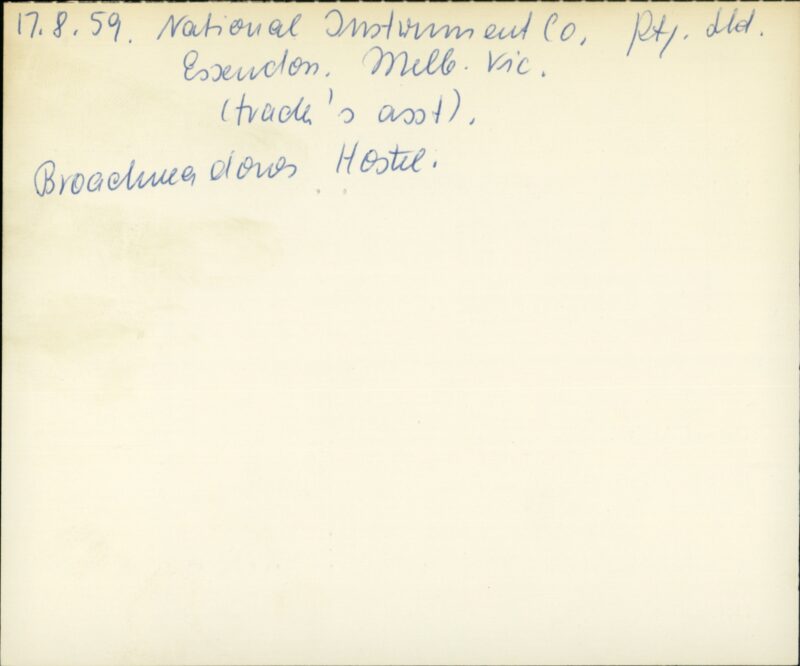 17.8.59. National Instrument Co. Pty. Ltd.
Essendon. Melb. Vic.
(trade's asst).
Broadmeadows Hostel.